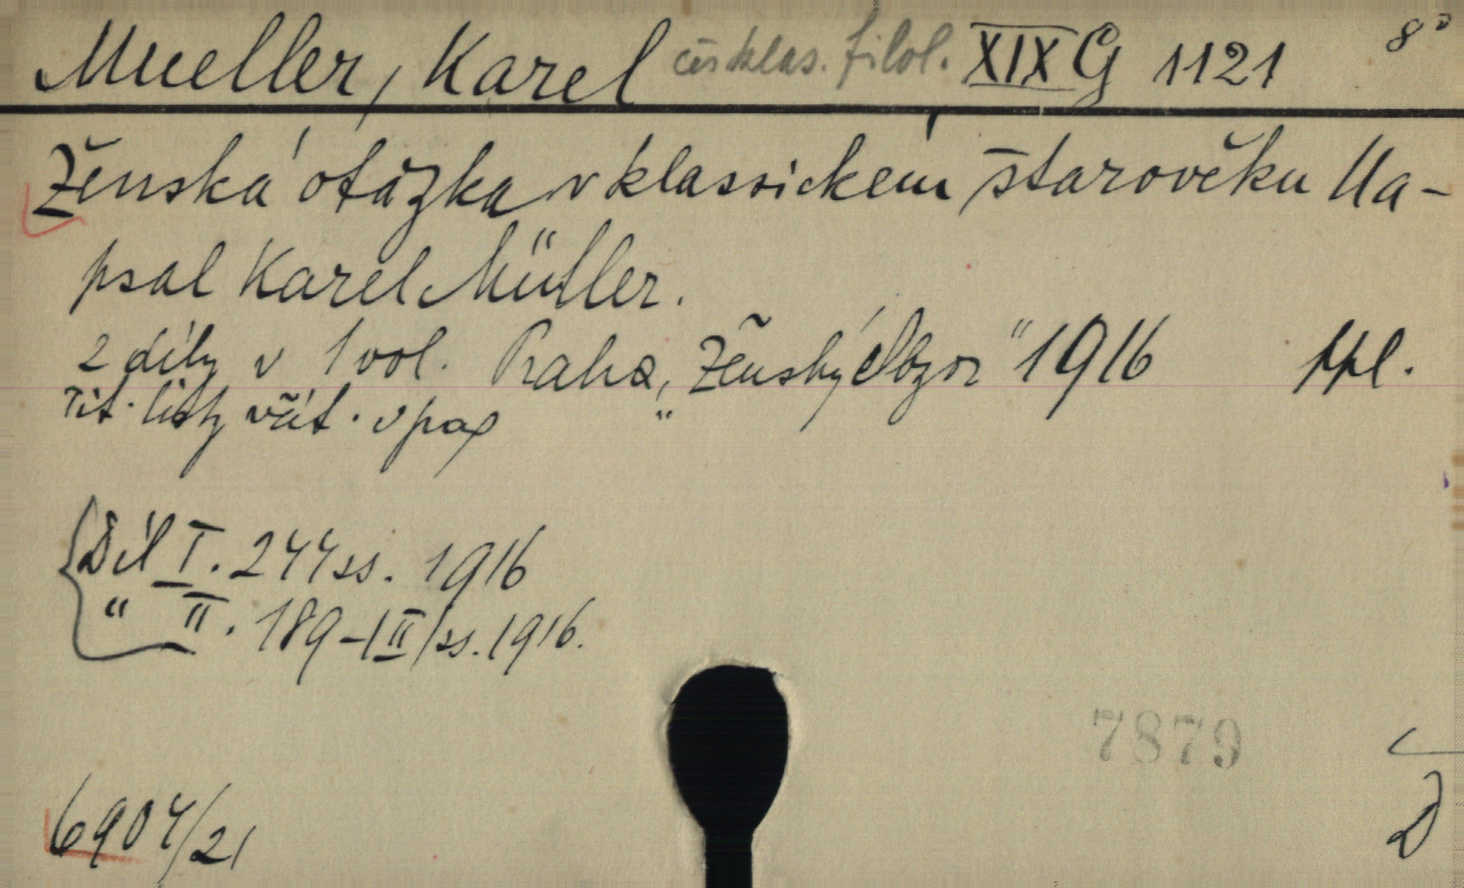 Mueller, Karel čes. klas. filol. XIX G 1121 8°
Ženská otázka v klassickém starověku Na-
psal Karel Müller.
2 díly v 1 vol. Praha, „Ženský Obzor" 1916 ppl.
Tit. listy včít. v pag
Díl I. 244 ss. 1916
" II. 189-|II| ss. 1916.
7879
6904/21
D